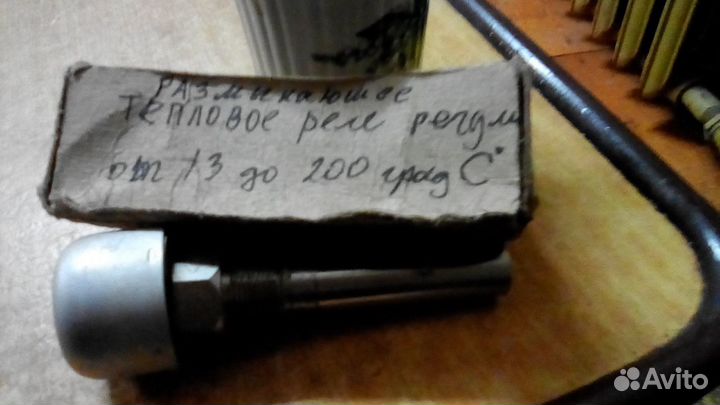 РАЗмыкающее
ТЕПЛОВОЕ реле регули
от 13 до 200 град С°
Avito